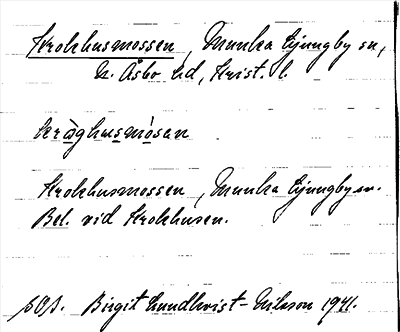 Krokhusmossen, Munka Ljungby sn,
N. Åsbo hd, Krist. l.
kråghusmósan
Krokhusmossen, Munka Ljungby sn.
Bel. vid Krokhusen.
Birgit Lundkvist-Nilsson 1941.